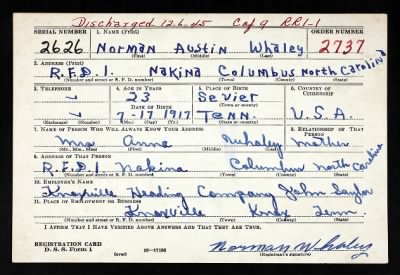 Discharged 12-6-45 Cof9 RR1-1
SERIAL NUMBER 1. NAME (Print) ORDER NUMBER
2626 Norman Austin Whaley 2737
(First) (Middle) (Last)
2. ADDRESS (Print)
R.F.D.1. Nakina Columbus North Carolina
(Number and street or R. F. D. number) (Town) (County) (State)
3. TELEPHONE 4. AGE IN YEARS 5. PLACE OF BIRTH 6. COUNTRY OF CITIZENSHIP
23 Sevier
DATE OF BIRTH (Town or county)
7-17-1917 Tenn. U.S.A.
(Exchange) (Number) (Mo.) (Day) (Yr.) (State or country)
7. NAME OF PERSON WHO WILL ALWAYS KNOW YOUR ADDRESS 8. RELATIONSHIP OF THAT PERSON
Mrs Anna Whaley mother
(Mr., Mrs., Miss) (First) (Middle) (Last)
9. ADDRESS OF THAT PERSON
R.F.D.1 Nakina Columbus North Carolina
(Number and street or R. F. D. number) (Town) (County) (State)
10. EMPLOYER'S NAME
Knoxville Heading Company John Saylor
11. PLACE OF EMPLOYMENT OR BUSINESS
Knoxville Knox Tenn
(Number and street or R. F. D. number) (Town) (County) (State)
I AFFIRM THAT I HAVE VERIFIED ABOVE ANSWERS AND THAT THEY ARE TRUE.
REGISTRATION CARD
D. S. S. Form 1 (over) 16-17105 Norman Whaley
(Registrant's signature)